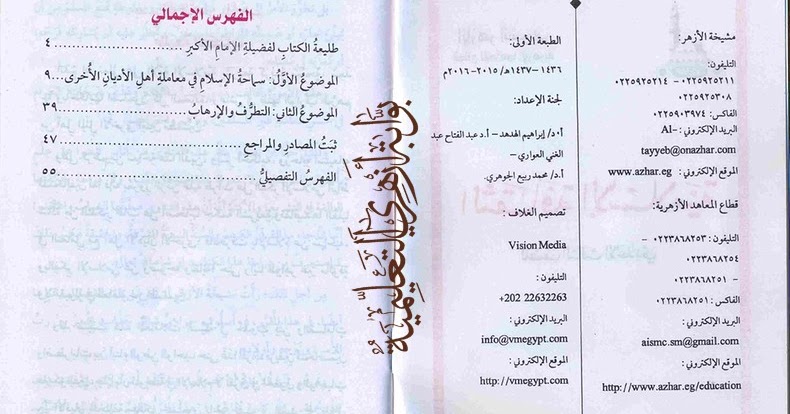 مشيخة الأزهر:
التليفون:
٠٢٢٥٩٢٥٢١١ – ٠٢٢٥٩٢٥٢١٤ –
٠٢٢٥٩٢٥٣٠٨
الفاكس: ٠٢٢٥٩٠٣٩٧٤
البريد الإليكتروني: Al-
tayyeb@onazhar.com
الموقع الإلكتروني:
www.azhar.eg
قطاع المعاهد الأزهرية:
التليفون: ٠٢٢٣٨٦٨٢٥٣ –
٠٢٢٣٨٦٨٢٥٤
– ٠٢٢٣٨٦٨٢٥١
الفاكس: ٠٢٢٣٨٦٨٢٥١
البريد الإلكتروني:
aismc.sm@gmail.com
الموقع الإلكتروني:
http://www.azhar.eg/education
الطبعة الأولى:
١٤٣٦–١٤٣٧هـ/ ٢٠١٥–٢٠١٦م
لجنة الإعداد:
أ.د/ إبراهيم الهدهد – أ.د عبد الفتاح عبد
الغني العواري –
أ.د/ محمد ربيع الجوهري
تصميم الغلاف:
Vision Media
التليفون:
+202 22632263
البريد الإلكتروني:
info@vmegypt.com
الموقع الإلكتروني:
http://vmegypt.com
بوابة أزهري التعليمية
الفهرس الإجمالي
طليعةُ الكتابِ لفضيلةِ الإمامِ الأكبرِ ........ ٤
الموضوعُ الأوَّلُ: سماحةُ الإسلامِ في معاملةِ أهلِ الأديانِ الأُخرى ... ٩
الموضوعُ الثاني: التطرُّفُ والإرهابُ ........ ٣٩
ثبَتُ المصادرِ والمراجعِ ........ ٤٧
الفهرسُ التفصيليُّ ........ ٥٥